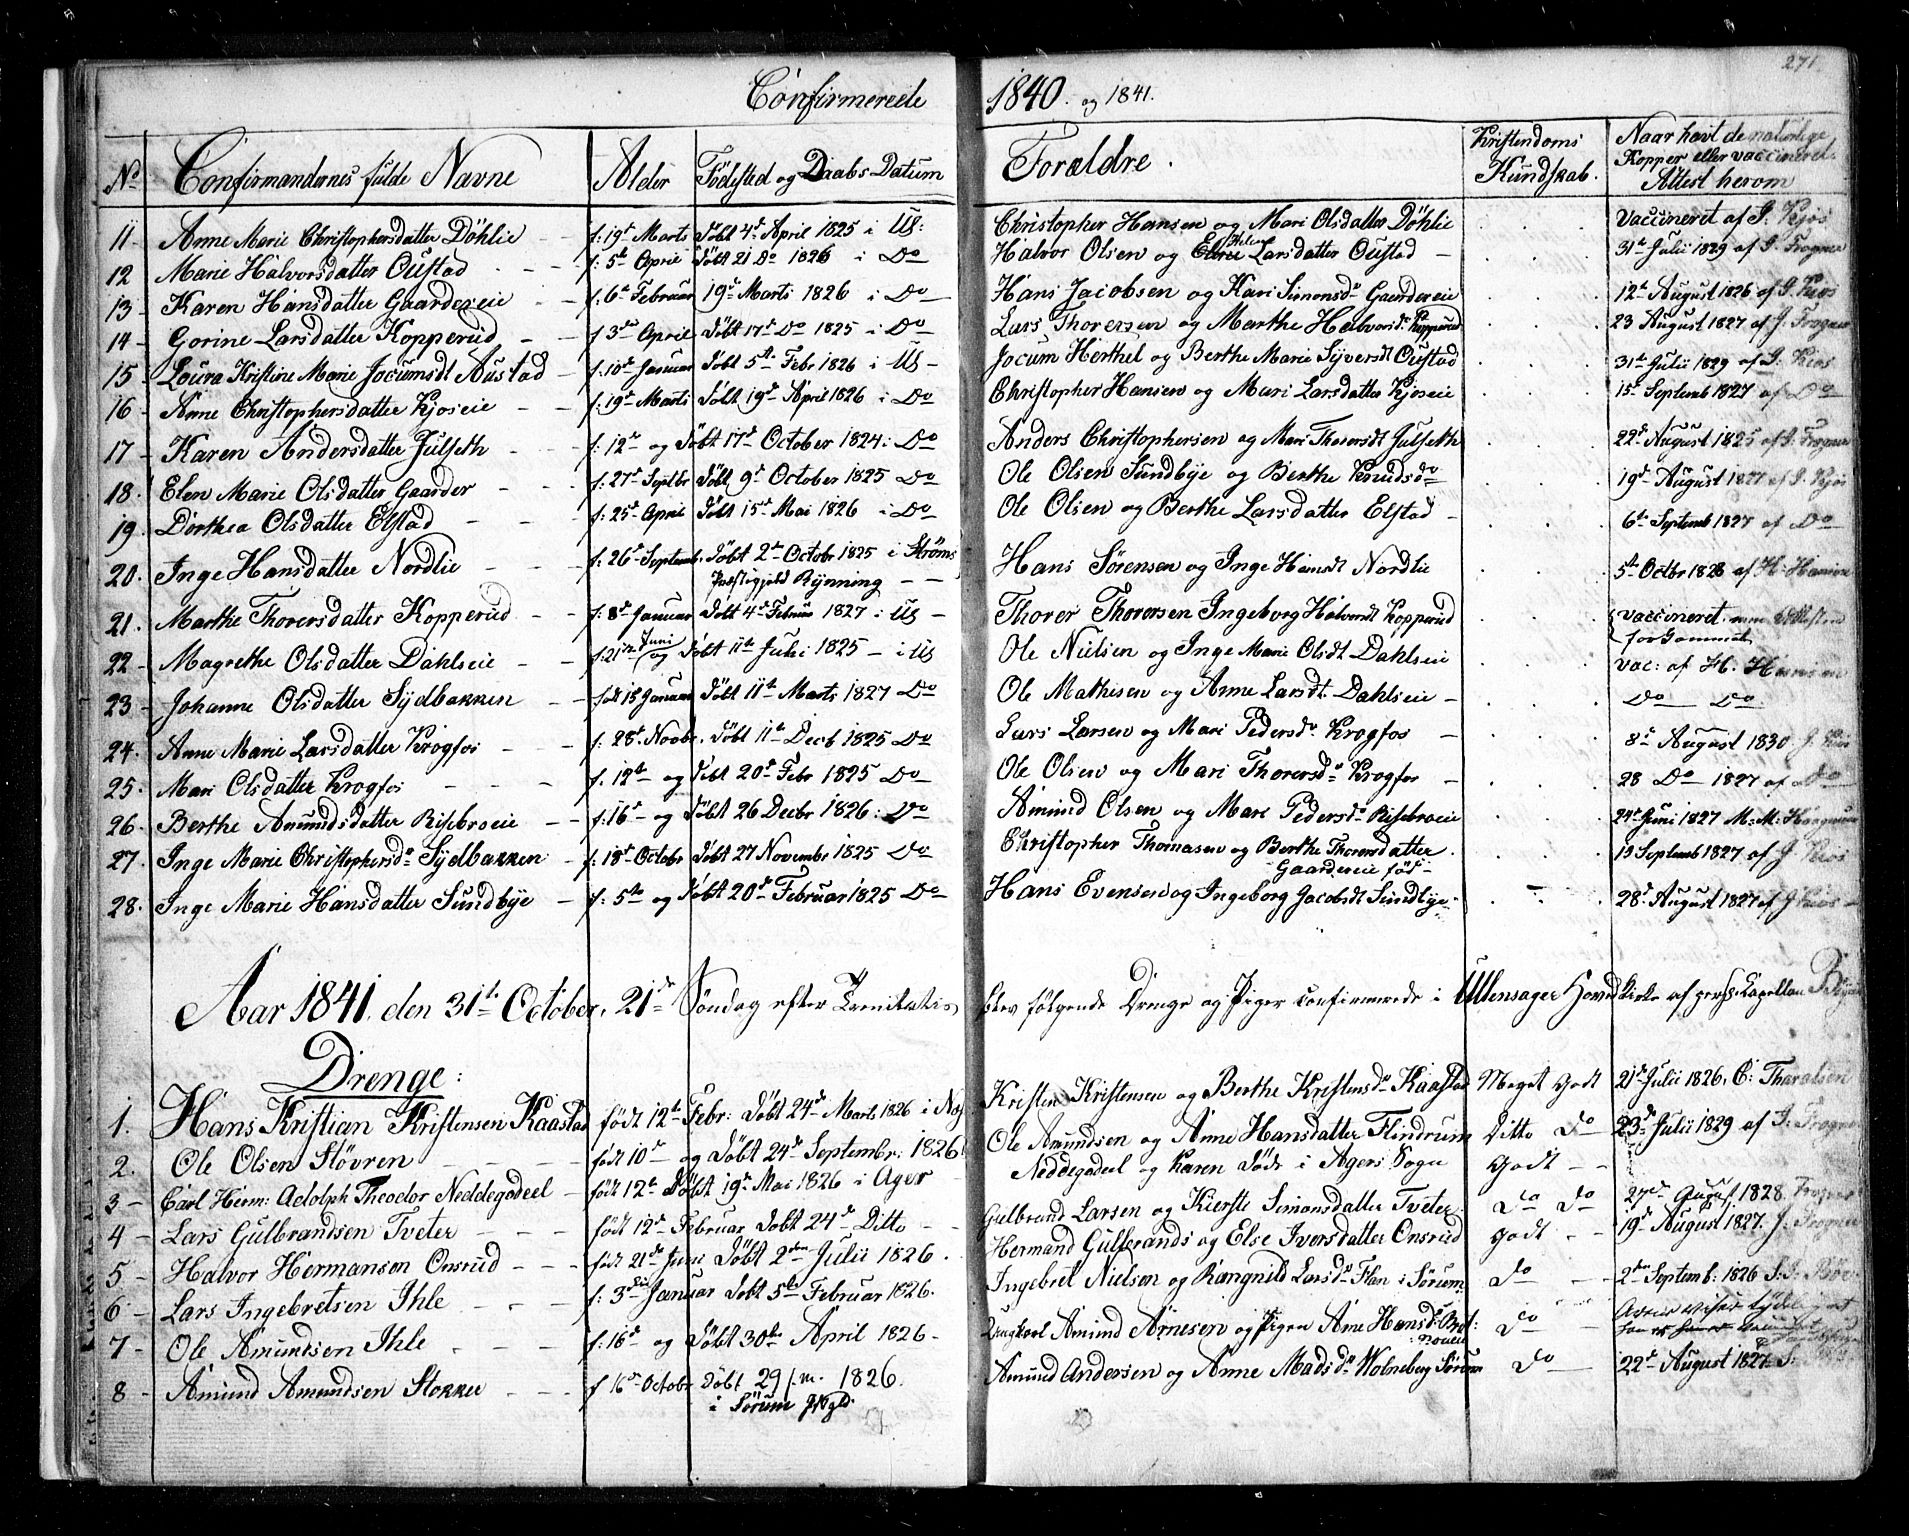 271
Confirmerede 1840. og 1841.
No Confirmandernes fulde Navne Alder Födested og Daabs Datum Forældre. Kristendoms Kundskab. Naar havt de naturlige Kopper eller vaccineret. Attest herom
11 Anne Marie Christophersdatter Döhlie f: 19d Marts Döbt 4d April 1825 i Us: Christopher Hansen og Mari Olsdatter Döhlie Vaccineret af J. Kjos
12 Marie Halvorsdatter Oustad f: 5te April Döbt 21 Do 1826 i Do Halvor Olsen og Larsdatter Oustad 31te Julii 1829 af J. Frogner
13 Karen Hansdatter Gaardereie f: 6te Februar 19d Marts 1826 i Do Hans Jacobsen og Kari Simonsdr Gaardereie 12te August 1826 af J. Kjos
14 Gorine Larsdatter Kopperud f 3de April Döbt 17d Do 1825 i Do Lars Thoresen og Marthe Halvorsdr Kopperud 23 August 1827 af J. Frogner
15 Loura Kristine Marie Jocumsdt Austad f: 10de Januar Döbt 5te Febr 1826 i Us Jocum Herthel og Berthe Marie Syversdt Oustad 31te Julii 1829 af J. Kios
16 Anne Christophersdatter Kjoseie f: 19d Marts Döbt 19d April 1826 i Do Christopher Hansen og Mari Larsdatter Kjoseie 15d Septemb 1827 af Do
17 Karen Andersdatter Julseth f: 12te og Döbt 17d October 1824: Do Anders Christophersen og Mari Thorersdt Julseth 22d August 1825 af J. Frogner
18. Elen Marie Olsdatter Gaarder f: 27de Septbr Döbt 9d October 1825 Do Ole Olsen Sundbye og Berthe Knudsdr 19d August 1827 af J. Kjos
19. Dorthea Olsdatter Elstad f: 25d April Döbt 15d Mai 1826 i Do Ole Olsen og Berthe Larsdatter Elstad 6te Septemb 1827 af Do
20. Inge Hansdatter Nordlie f: 26d Septemb. Döbt 2den Octobr 1825 i Ströms Præstegjeld Rynning Hans Sörensen og Inge Hansdt Nordlie 5te Octbr 1828 af H. Hansen
21. Marthe Thorersdatter Kopperud f: 8de Januar Döbt 4d Februar 1827 i Us Thorer Thorersen Ingeborg Halvorsdt Kopperud Vaccineret men Attesten for Gammel
22 Magrethe Olsdatter Dahlseie f: 21de Juni og Döbt 11te Juli 1825 i Us Ole Nielsen og Inge Marie Olsdt Dahlseie vac: af H. Hansen
23 Johanne Olsdatter Sydbakken födt 18 Januar Döbt 11te Marts 1827 Do Ole Mathisen og Anne Larsdt Dahlseie Do Do
24. Anne Marie Larsdatter Krogfos f: 28d Novbr. Döbt 11te Decb 1825 Do Lars Larsen og Mari Pedersdr Krogfos 8d August 1830 J. Kios
25. Mari Olsdatter Krogfos f: 12te og Döbt 20d Febr 1825 Do Ole Olsen og Mari Thorersdr Krogfos 28 Do 1827 af Do
26. Berthe Amundsdatter Risebroeie f: 16d og Döbt 26 Decbr 1826: Do Amund Olsen og Mari Pedersdr Risebroeie 24d Juni 1827 M: M:
27. Inge Marie Christophersdr Sydbakken f: 18d Octobr Döbt 27 Novembr 1825 Do Christopher Thomasen og Berthe Thorersdatter Gaardereie föd 15 Septemb 1827 af J. Kios
28. Inge Marie Hansdatter Sundbye f: 5te og Döbt 20d Februar 1825 Do Hans Evensen og Ingeborg Jacobsdt Sundbye 28d August 1827 af J. Kios
Aar 1841. den 31te October, 21de Söndag efter Trenitatis blev fölgende Drenge og Piger confirmerede i Ullensager Hoved Kirke af pers: Kapellan
Drenge:
1. Hans Kristian Kristensen Kaastad födt 12te Febr: Döbt 24d Marts 1826 i Næs Kristen Kristensen og Berthe Kristensdr Kaastad Meget Godt 21de Julii 1826, C: Tharaldsen
2. Ole Olsen Stövren födt 10de og Döbt 24d Septembr: 1826 Ole Amundsen og Anne Hansdatter Flindrum Ditto Do 23de Julii 1829 af J: Frogner
3 Carl Herm: Adolph Theodor Neddegodeel födt 12te Döbt 19d Mai 1826 i Ager Neddegodeel og Karen Döde i Agers Sogn Godt
4 Lars Gulbrandsen Tveter födt 12d Februar Döbt 24d Ditto Gulbrand Larsen og Kierste Simonsdatter Tveter Do Do 27de August 1828. Frogner
5 Halvor Hermansen Onsrud födt 21de Juni Döbt 2den Julii 1826. Hermand Gulbrands og Else Iversdatter Onsrud Godt 19d August 1827. J. Frogner
6 Lars Ingebretsen Ihle f: 3die Januar Döbt 5te Februar 1826. Ingebret Nielsen og Rangnild Larsdr Flan i Sörum Do 2den Septemb: 1826
7 Ole Amundsen Ihle f: 16d og Döbt 30de April 1826 Ungkarl Amund Arnesen og Pigen Ane Hansdr Do
8 Amund Amundsen Stokker f 16d Octobr Döbt 29 s. m. 1826. i Sörum Prgld. Amund Andersen og Anne Madsdr Wolneberg Sörum Do 22d August 1827.